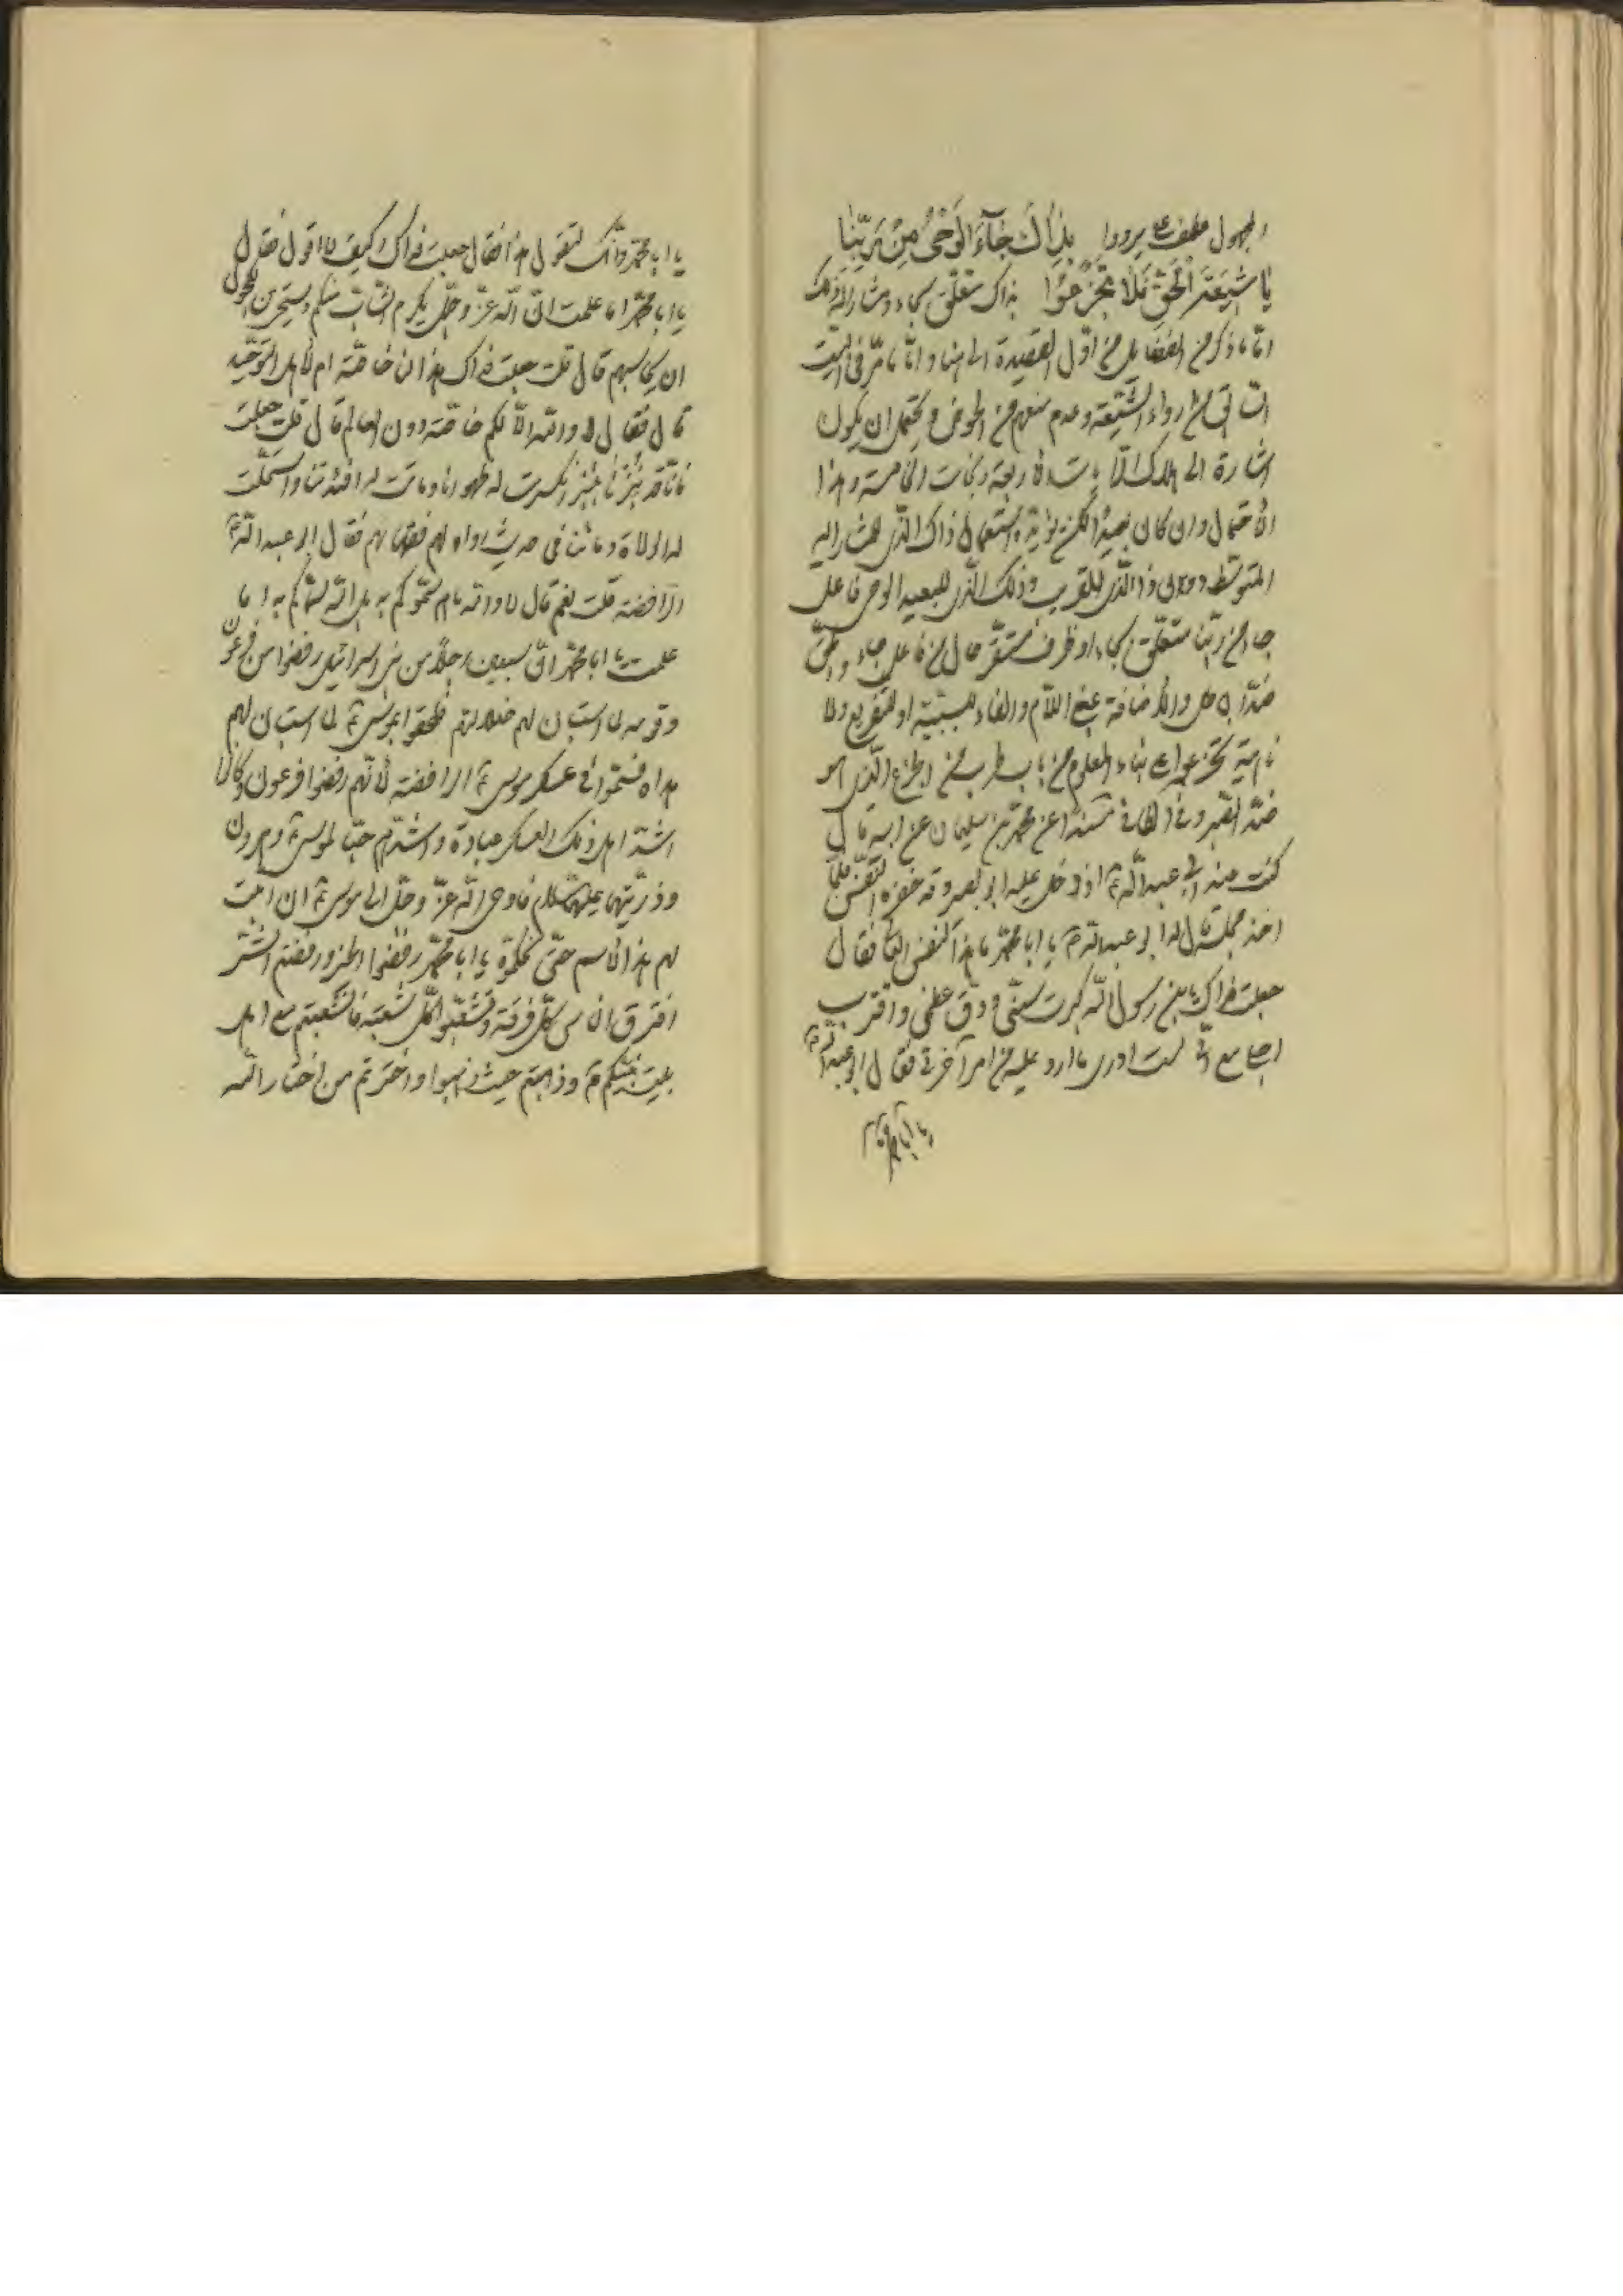 المجهول عطف على يردوا بذاك جآء الوحى من ربنا
يا شيعة الحق فلا تجزعوا بذاك متعلق بجاء ومشار اليه ذلك
اما ما ذكر من الفضايل من اول القصيدة الى هنا واما ما مر فى البيت
السابق من ارواء الشيعة وعدم منعهم من الحوض ويحتمل ان يكون
اشارة الى هلاك الرايات الاربعة ونجات الخامسة وهذا
الاحتمال وان كان بعيدا لكن يؤيده استعمال ذاك الذى للمشار اليه
المتوسط دون ذا الذى للقريب وذلك الذى للبعيد الوحى فاعل
جاء من ربنا متعلق بجاء او ظرف مستقر حال من فاعل جاء والحق
ضد الباطل والاضافة بمعنى اللام والفاء للسببية او للتفريع ولا
ناهية تجزعوا على بناء المعلوم من باب طرب من الجزع الذى هو
ضد الصبر وفى الكافى مسندا عن محمد بن سليمان عن ابيه قال
كنت عند ابى عبدالله ع اذ دخل عليه ابو بصير وقد خفزه النفس فلما
اخذ مجلسه قال له ابو عبدالله ع يا ابا محمد ما هذا النفس العالى فقال
جعلت فداك يا بن رسول الله كبرت سنى ودق عظمى واقترب
اجلى مع انى لست ادرى ما ارد عليه من امر آخرتى فقال ابو عبدالله ع
يا ابا محمد
يا ابا محمد وانك لتقول هذا فقال جعلت فداك وكيف لا اقول فقال
يا ابا محمد اما علمت ان الله عز وجل يكرم الشاب منكم ويستحى من الكهول
ان يحاسبهم قال قلت جعلت فداك هذا لنا خاصة ام لاهل التوحيد
قال فقال لا والله الا لكم خاصة دون العالم قال قلت جعلت
فانا قد نبزنا نبزا انكسرت له ظهورنا وماتت له افئدتنا واستحلت
له الولاة دمائنا فى حديث رواه لهم فقهائهم فقال ابو عبدالله ع
الرافضة قلت نعم قال لا والله ما هم سموكم به بل الله سماكم به اما
علمت يا ابا محمد ان سبعين رجلا من بنى اسرائيل رفضوا من فرعون
وقومه لما استبان لهم ضلالتهم فلحقوا بموسى ع لما استبان لهم
هداه فسموا فى عسكر موسى ع الرافضة لانهم رفضوا فرعون وكانوا
اشد اهل ذلك العسكر عبادة واشدهم حبا لموسى ع وهرون
وذريتهما عليهما السلام فاوحى الله عز وجل الى موسى ع ان اثبت
لهم هذا الاسم حتى نحلكموه يا ابا محمد رفضوا الخير ورفضتم الشر
افترق الناس كل فرقة وتشعبوا كل شعبة فانشعبتم مع اهل
بيت نبيكم ص وذهبتم حيث ذهبوا واخترتم من اختار الله